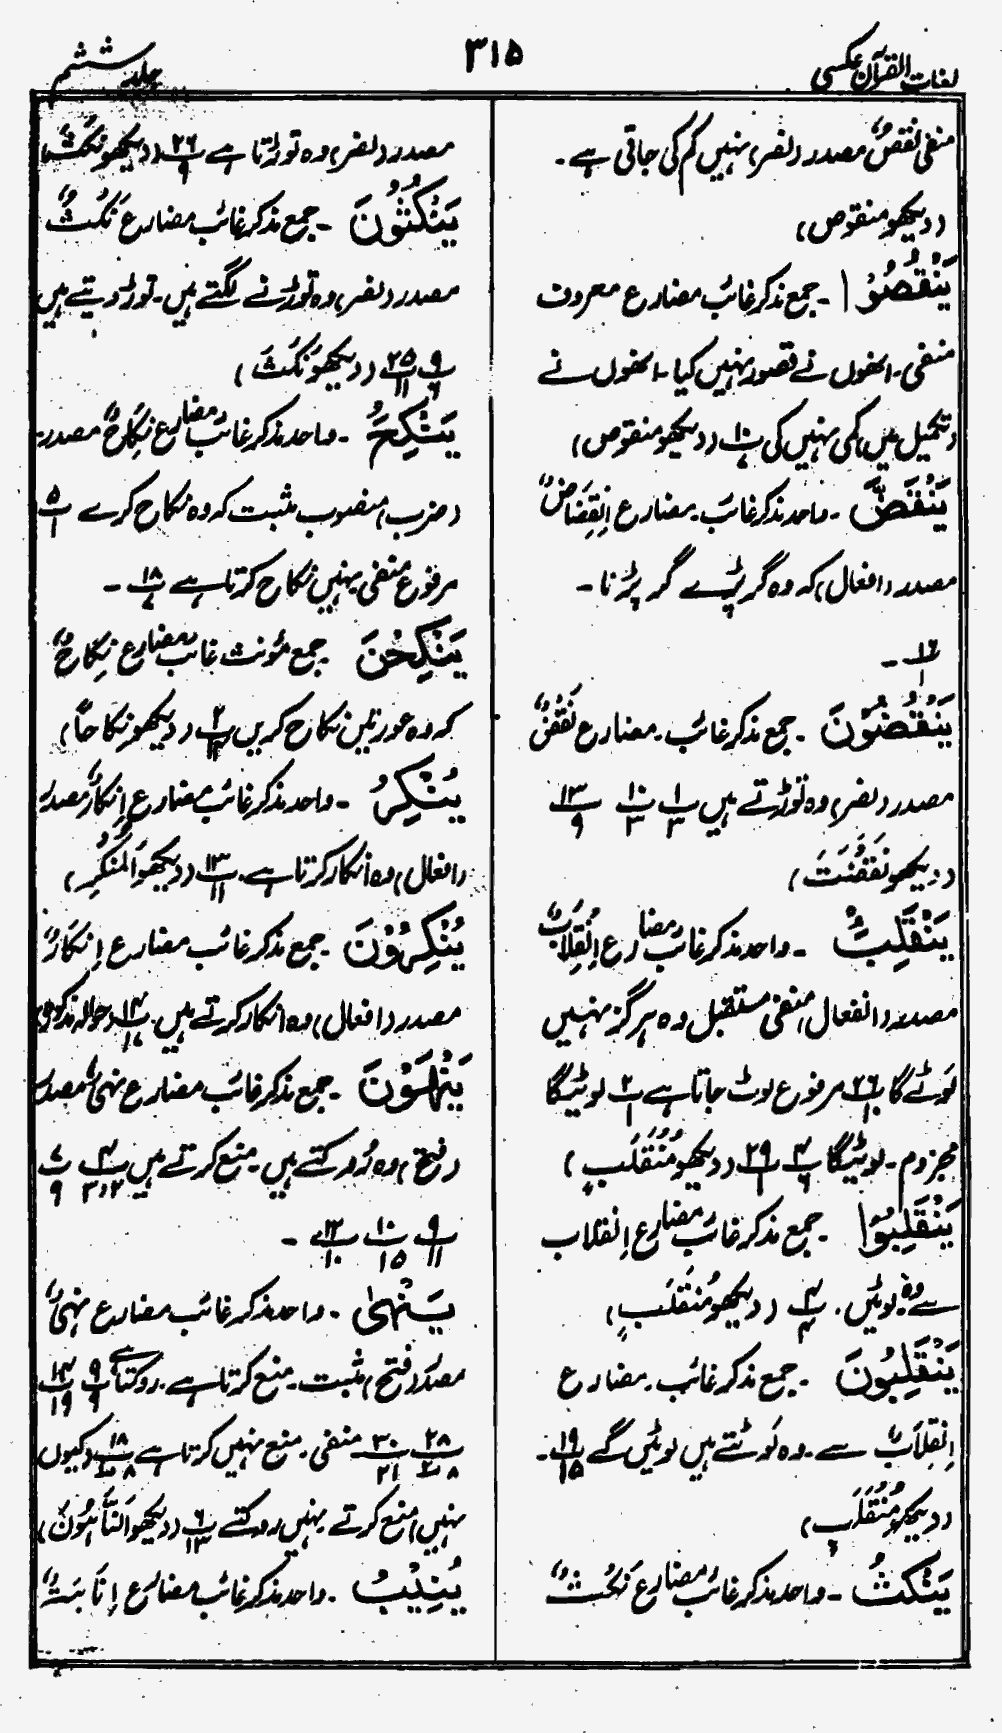 لغات القرآن عکسی
۳۱۵
جلد ششم
منفی نَقْصٌ مصدر (نصر) نہیں کم کی جاتی ہے۔
(دیکھو منقوص)
یَنْقُصُوْا ۔ جمع مذکر غائب مضارع معروف
منفی۔ انھوں نے قصور نہیں کیا۔ انھوں نے
(تکمیل میں) کمی نہیں کی ۱۰/۷ (دیکھو منقوص)
یَنْقَضَّ ۔ واحد مذکر غائب۔ مضارع اِنْقِضَاضٌ
مصدر (افعال) کہ وہ گر پڑے گر پڑنا۔
۱۶/۱ ۔
یَنْقُضُوْنَ ۔ جمع مذکر غائب۔ مضارع نَقْضٌ
مصدر (نصر) وہ توڑتے ہیں ۱/۳ ۱۰/۳ ۱۳/۹
(دیکھو نَقَضَتْ)
یَنْقَلِبُ ۔ واحد مذکر غائب مضارع اِنْقِلَابٌ
مصدر (انفعال) منفی مستقبل وہ ہرگز نہیں
لَوٹے گا ۲۶/۱۰ مرفوع لوٹ جاتا ہے ۲/۱ لوٹیگا
مجزوم۔ لوٹیگا ۴/۶ ۲۹/۱ (دیکھو مُنْقَلَبٍ)
یَنْقَلِبُوْا ۔ جمع مذکر غائب مضارع اِنقلاب
سے وہ لوٹیں۔ ۴/۴ (دیکھو مُنْقَلَبٍ)
یَنْقَلِبُوْنَ ۔ جمع مذکر غائب۔ مضارع
اِنْقِلَابٌ سے ۔ وہ لَوٹتے ہیں لوٹیں گے ۱۹/۱۵ ۔
(دیکھو مُنْقَلَبٍ)
یَنْکُثُ ۔ واحد مذکر غائب مضارع نَکْثٌ
مصدر (نصر) وہ توڑتا ہے ۲۶/۹ (دیکھو نَکَثَ)
یَنْکُثُوْنَ ۔ جمع مذکر غائب مضارع نَکْثٌ
مصدر (نصر) وہ توڑنے لگتے ہیں۔ توڑ دیتے ہیں
۹/۶ ۲۵/۱۱ (دیکھو نَکَثَ)
یَنْکِحَ ۔ واحد مذکر غائب مضارع نِکَاحٌ مصدر۔
(ضرب) منصوب مثبت کہ وہ نکاح کرے ۵/۱
مرفوع منفی نہیں نکاح کرتا ہے ۱۸/۷ ۔
یَنْکِحْنَ جمع مؤنث غائب مضارع نِکَاحٌ
کہ وہ عورتیں نکاح کریں ۲/۱۴ (دیکھو نِکَاحًا)
یُنْکِرُ ۔ واحد مذکر غائب مضارع اِنْکَارٌ مصدر
(افعال) وہ انکار کرتا ہے۔ ۱۳/۱۱ (دیکھو اَلْمُنْکَرِ)
یُنْکِرُوْنَ ۔ جمع مذکر غائب مضارع اِنْکَارٌ
مصدر (افعال) وہ انکار کرتے ہیں۔ ۱۴/۱۷ (حوالہ مذکورہ)
یَنْهَوْنَ ۔ جمع مذکر غائب مضارع نَہْیٌ مصدر
(فتح) وہ رُوکتے ہیں۔ منع کرتے ہیں ۴/۲،۳ ۷/۹
۹/۱۱ ۱۰/۱۵ ۱۲/۱۰ ۔
یَنْهٰی ۔ واحد مذکر غائب مضارع نَہْیٌ
مصدر (فتح) مثبت۔ منع کرتا ہے۔ روکتا ہے ۹/۹ ۱۴/۱۹
۲۸/۸ ۳۰/۲۱ منفی۔ منع نہیں کرتا ہے ۱۸/۸ (کیوں
نہیں) منع کرتے نہیں روکتے ۶/۱۳ (دیکھو اَلنَّاہُوْنَ)
یُنِیْبُ ۔ واحد مذکر غائب مضارع اِنَابَۃٌ